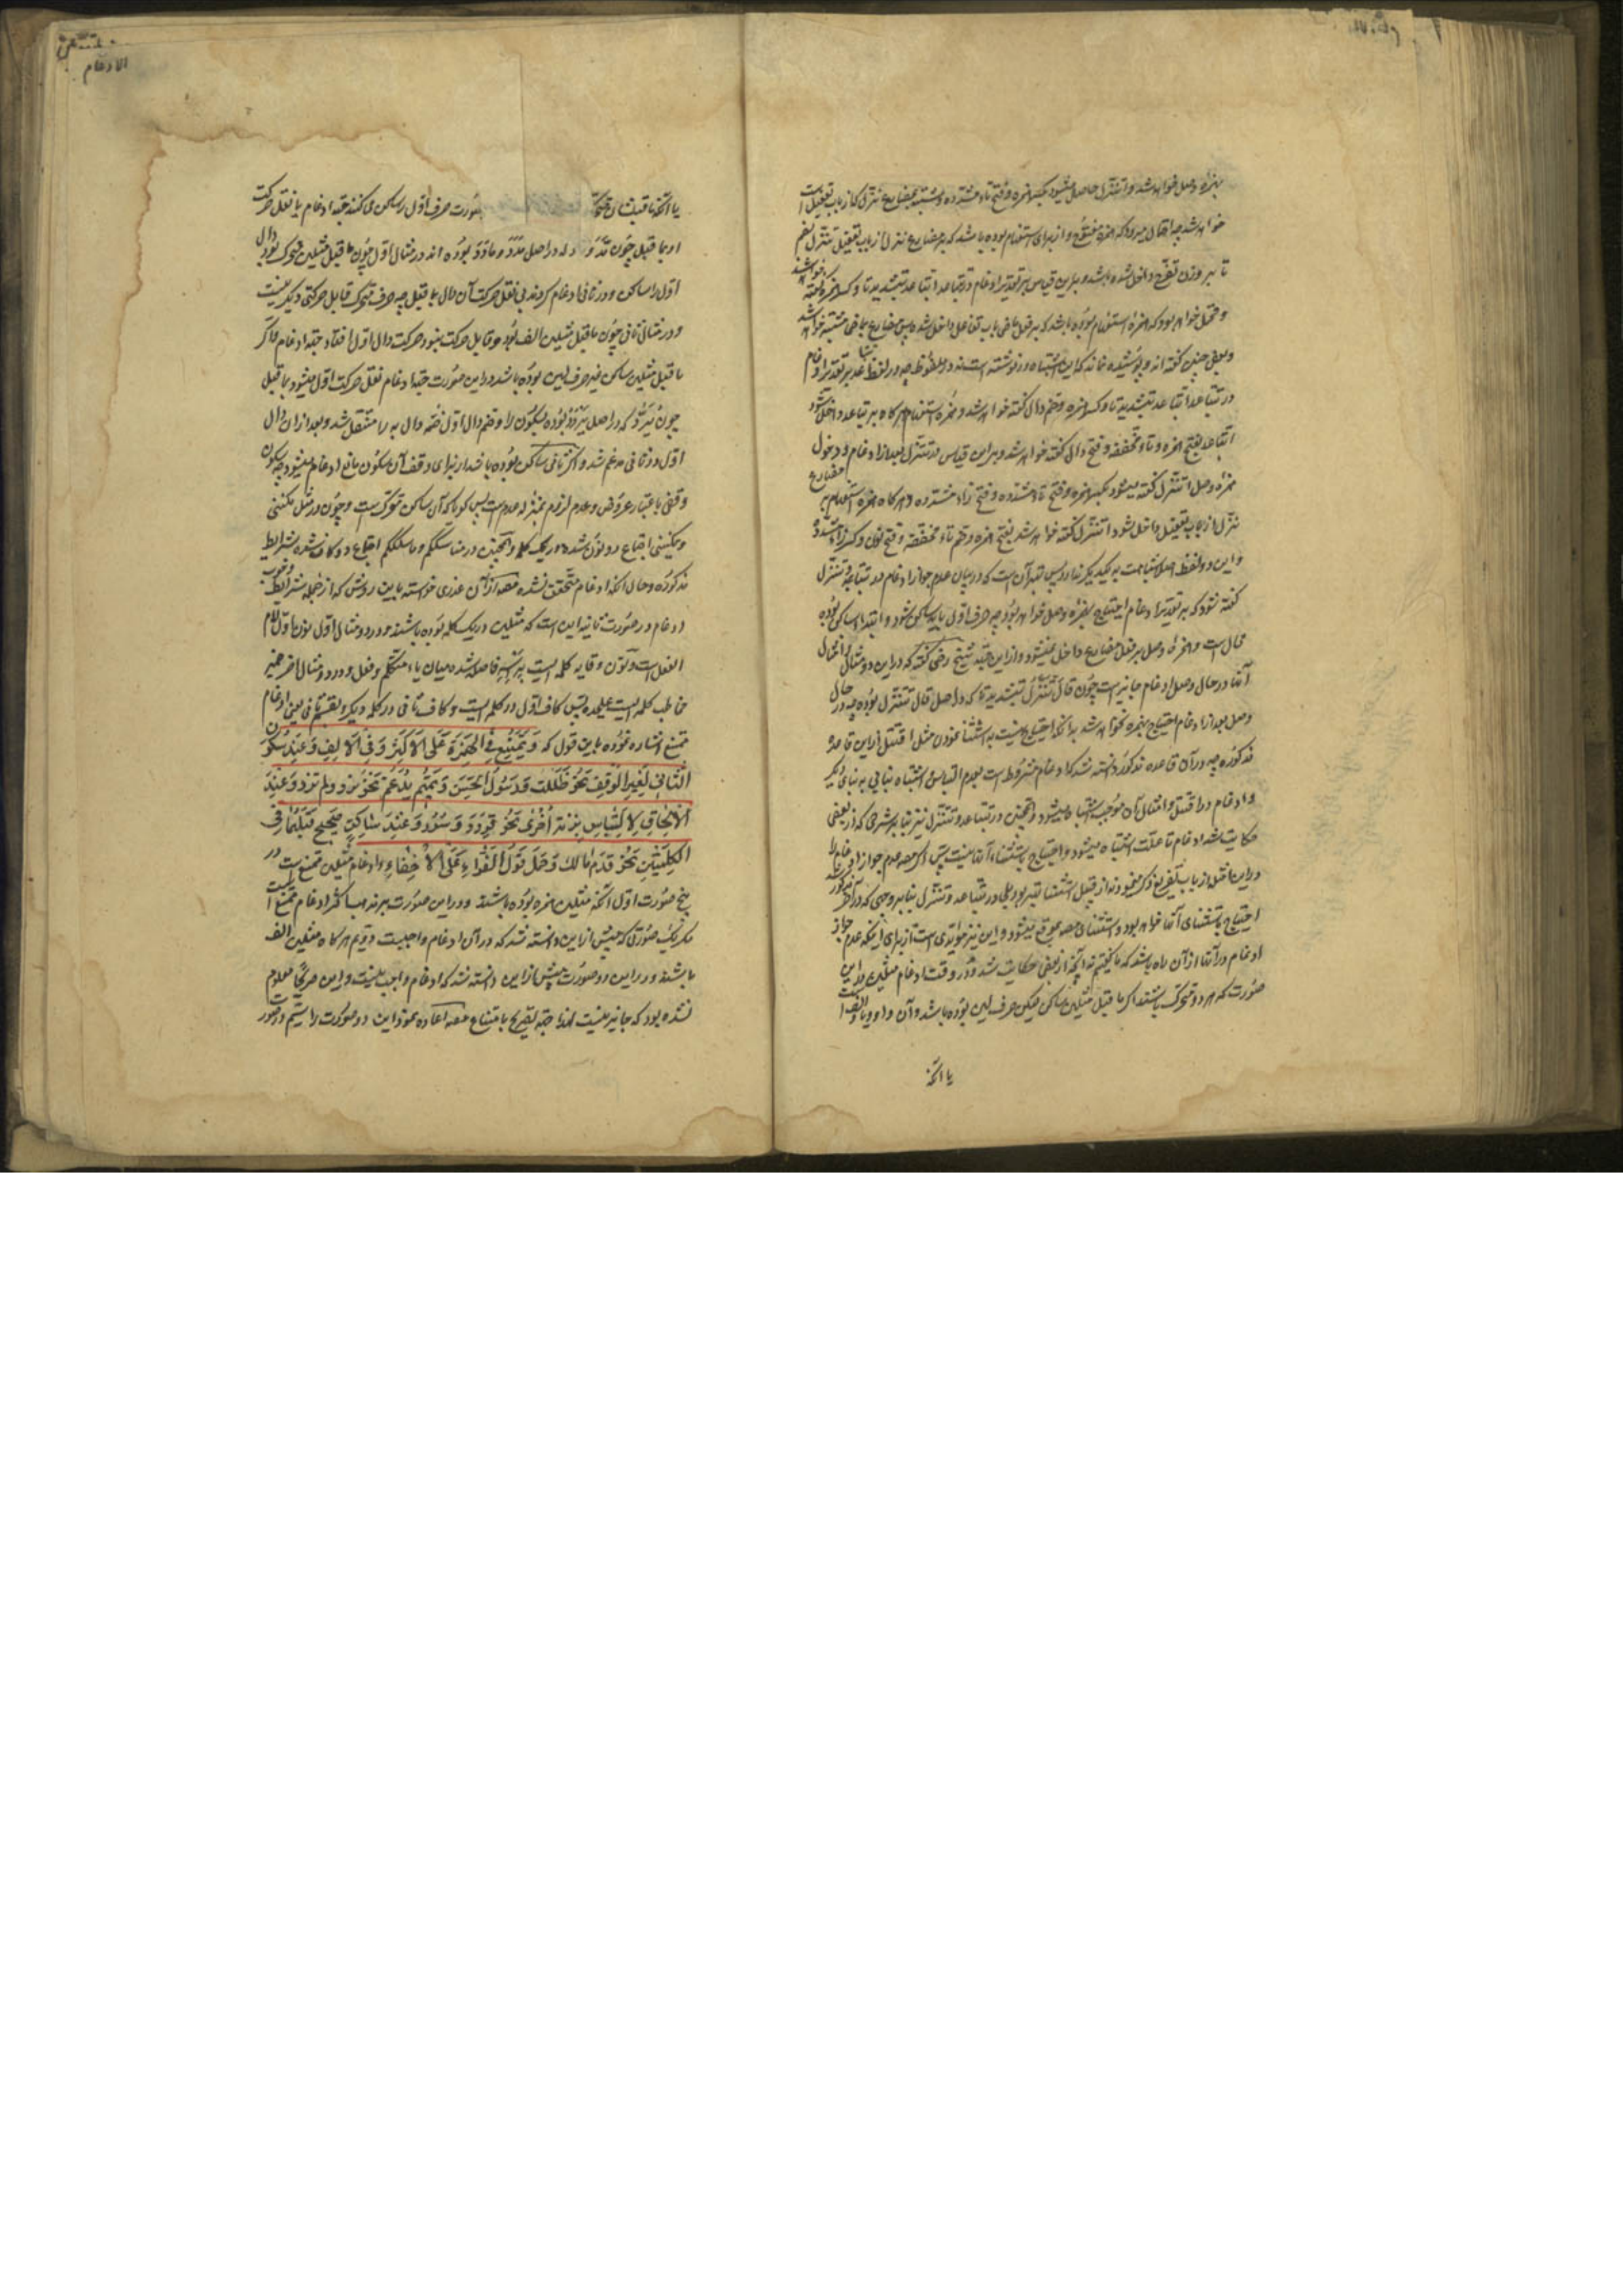 بهمزه وصل خواهد شد و اتنزل حاصل میشود بکسر همزه و فتح تاء مشدده و مشتبه بمضارع تنزل که از باب تفعیل است
خواهد شد چه احتمال میرود که همزه مفتوح و از برای استفهام بوده باشد که بر مضارع تنزل از باب تفعیل تنزل بضم
تا بر وزن تفرح داخل شده باشد و براین قیاس بر تقدیر ادغام در تتباعد اتباعد بتشدید تا و کسر همزه گفته خواهد شد
و محتمل خواهد بود که همزه استفهام بوده باشد که بر فعل ماضی باب تفاعل داخل شده پس مضارع بماضی مشتبه خواهد شد
و بعضی چنین گفته اند و پوشیده نماند که این اشتباه در نوشته است نه در ملفوظ چه در لفظ بنا بر تقدیر ادغام
در تتباعد اتباعد بتشدید تا و کسر همزه و ضم دال گفته خواهد شد و همزه استفهام هر گاه بر تباعد داخل شود
اتباعد بفتح همزه و تاء مخففه و فتح دال گفته خواهد شد و براین قیاس در تتنزل بعد از ادغام و دخول
همزه وصل اتنزل گفته میشود بکسر همزه و فتح تاء مشدده و فتح زاء مشدده و هر گاه همزه استفهام بر مضارع
تنزل از باب تفعیل داخل شود اتنزل گفته خواهد شد بفتح همزه و ضم تاء مخففه و فتح نون و کسر زاء مشدده
و این دو لفظ اصلا شباهت به یکدیگر ندارد پس بهتر آن است که در بیان عدم جواز ادغام در تتباعد و تتنزل
گفته شود که بر تقدیر ادغام احتیاج بهمزه وصل خواهد بود چه حرف اول باید ساکن شود و ابتدا بساکن بوده
محال است و همزه وصل بر فعل مضارع داخل نمیشود و از این جهة شیخ رضی گفته که در این دو مثال و امثال
آنها در حال وصل ادغام جایز است چون قال تنزل بتشدید تا که در اصل قال تتنزل بوده چه در حال
وصل بعد از ادغام احتیاج بهمزه نخواهد شد به آنکه احتیاج نیست به استثنا نمودن مثل اقتتل از این قاعده
مذکوره چه در آن قاعده مذکور دانسته شد که ادغام مشروط است بعدم التباس و اشتباه بنایی به بنای دیگر
و ادغام در اقتتل و امثال آن موجب اشتباه میشود و همچنین در تتباعد و تتنزل نیز بنا بر شرحی که از بعضی
حکایت شد ادغام تا علت اشتباه میشود و احتیاج باستثناء آنها نیست پس اگر مصه عدم جواز ادغام را
در این
احتیاج باستثنای آنها خواهد بود و استثنای مصه بموقع میشود و این نیز مؤیدی است از برای اینکه عدم جواز
ادغام در آنها از آن راه باشد که ما گفتیم نه آنچه از بعضی حکایت شد و در وقت ادغام مثلین در این
صورت که هر دو متحرک باشند اگر ما قبل مثلین ساکن لیکن حرف لین بوده باشد و آن واو و یا و الف است
یا آنکه
یا آنکه ما قبلشان متحرک صورت حرف اول را ساکن می کنند جهة ادغام یا نقل حرکت
او بما قبل چون مد و ماد که در اصل مدد و مادد بوده اند در مثال اول چون ما قبل مثلین متحرک بود دال
اول را ساکن و در ثانی ادغام کردند بی نقل حرکت آن دال بما قبل چه حرف متحرک قابل حرکتی دیگر نیست
و در مثال ثانی چون ما قبل مثلین الف بود و قابل حرکت نبود حرکت دال اول افتاد جهة ادغام و اگر
ما قبل مثلین ساکن غیر حرف لین بوده باشد در این صورت جهة ادغام نقل حرکت اول میشود بما قبل
چون یرد که در اصل یردد بوده بسکون را و ضم دال اول ضمه دال به را منتقل شد و بعد از آن دال
اول در ثانی مدغم شد و اگر ثانی ساکن بوده باشد از برای وقف آن سکون مانع ادغام نمیشود چه سکون
وقفی باعتبار عروض و عدم لزوم بمنزله عدم است پس گویا که آن ساکن متحرک است و چون در مثل مکننی
و یمکننی اجتماع دو نون شده در یک کلمه و همچنین در مناسککم و ما سلککم اجتماع دو کاف شده بشرایط
مذکوره و حال آنکه ادغام متحقق نشده مصه از آن عذری خواسته باین روش که از جمله شرایط وجوب
ادغام در صورت ثانیه این است که مثلین در یک کلمه بوده باشند و در دو مثال اول نون اول لام
الفعل است و نون وقایه کلمه ایست فاصله شده میان یاء متکلم و فعل و در دو مثال آخر ضمیر
مخاطب کلمه ایست علیحده پس کاف اول در کلمه ایست و کاف ثانی در کلمه دیگر و بقسم ثانی یعنی ادغام
ممتنع اشاره نموده باین قول که و یمتنع فی الهمزة علی الاکثر و فی الالف و عند سکون
الثانی لغیر الوقف نحو ظللت و رسول الحسن و تمیم یدغم نحو رد و لم یرد و عند
الالحاق و اللبس بزنة اخری نحو قردد و سرر و عند ساکن صحیح قبلهما فی
الکلمتین نحو قرم مالک و حمل قول القراء علی الاخفاء و ادغام مثلین ممتنع است در
پنج صورت اول آنکه مثلین همزه بوده باشند و در این صورت بر مذهب اکثر ادغام ممتنع است
مگر یک صورتی که پیش از این دانسته شد که در آن ادغام واجبست دویم هر گاه مثلین الف
باشند و در این دو صورت پیش از این دانسته شد که ادغام واجب نیست و این صریحا معلوم
نشده بود که جایز نیست لهذا جهة تصریح بامتناع مصه اعاده نمود این دو صورت را سیم در صورت